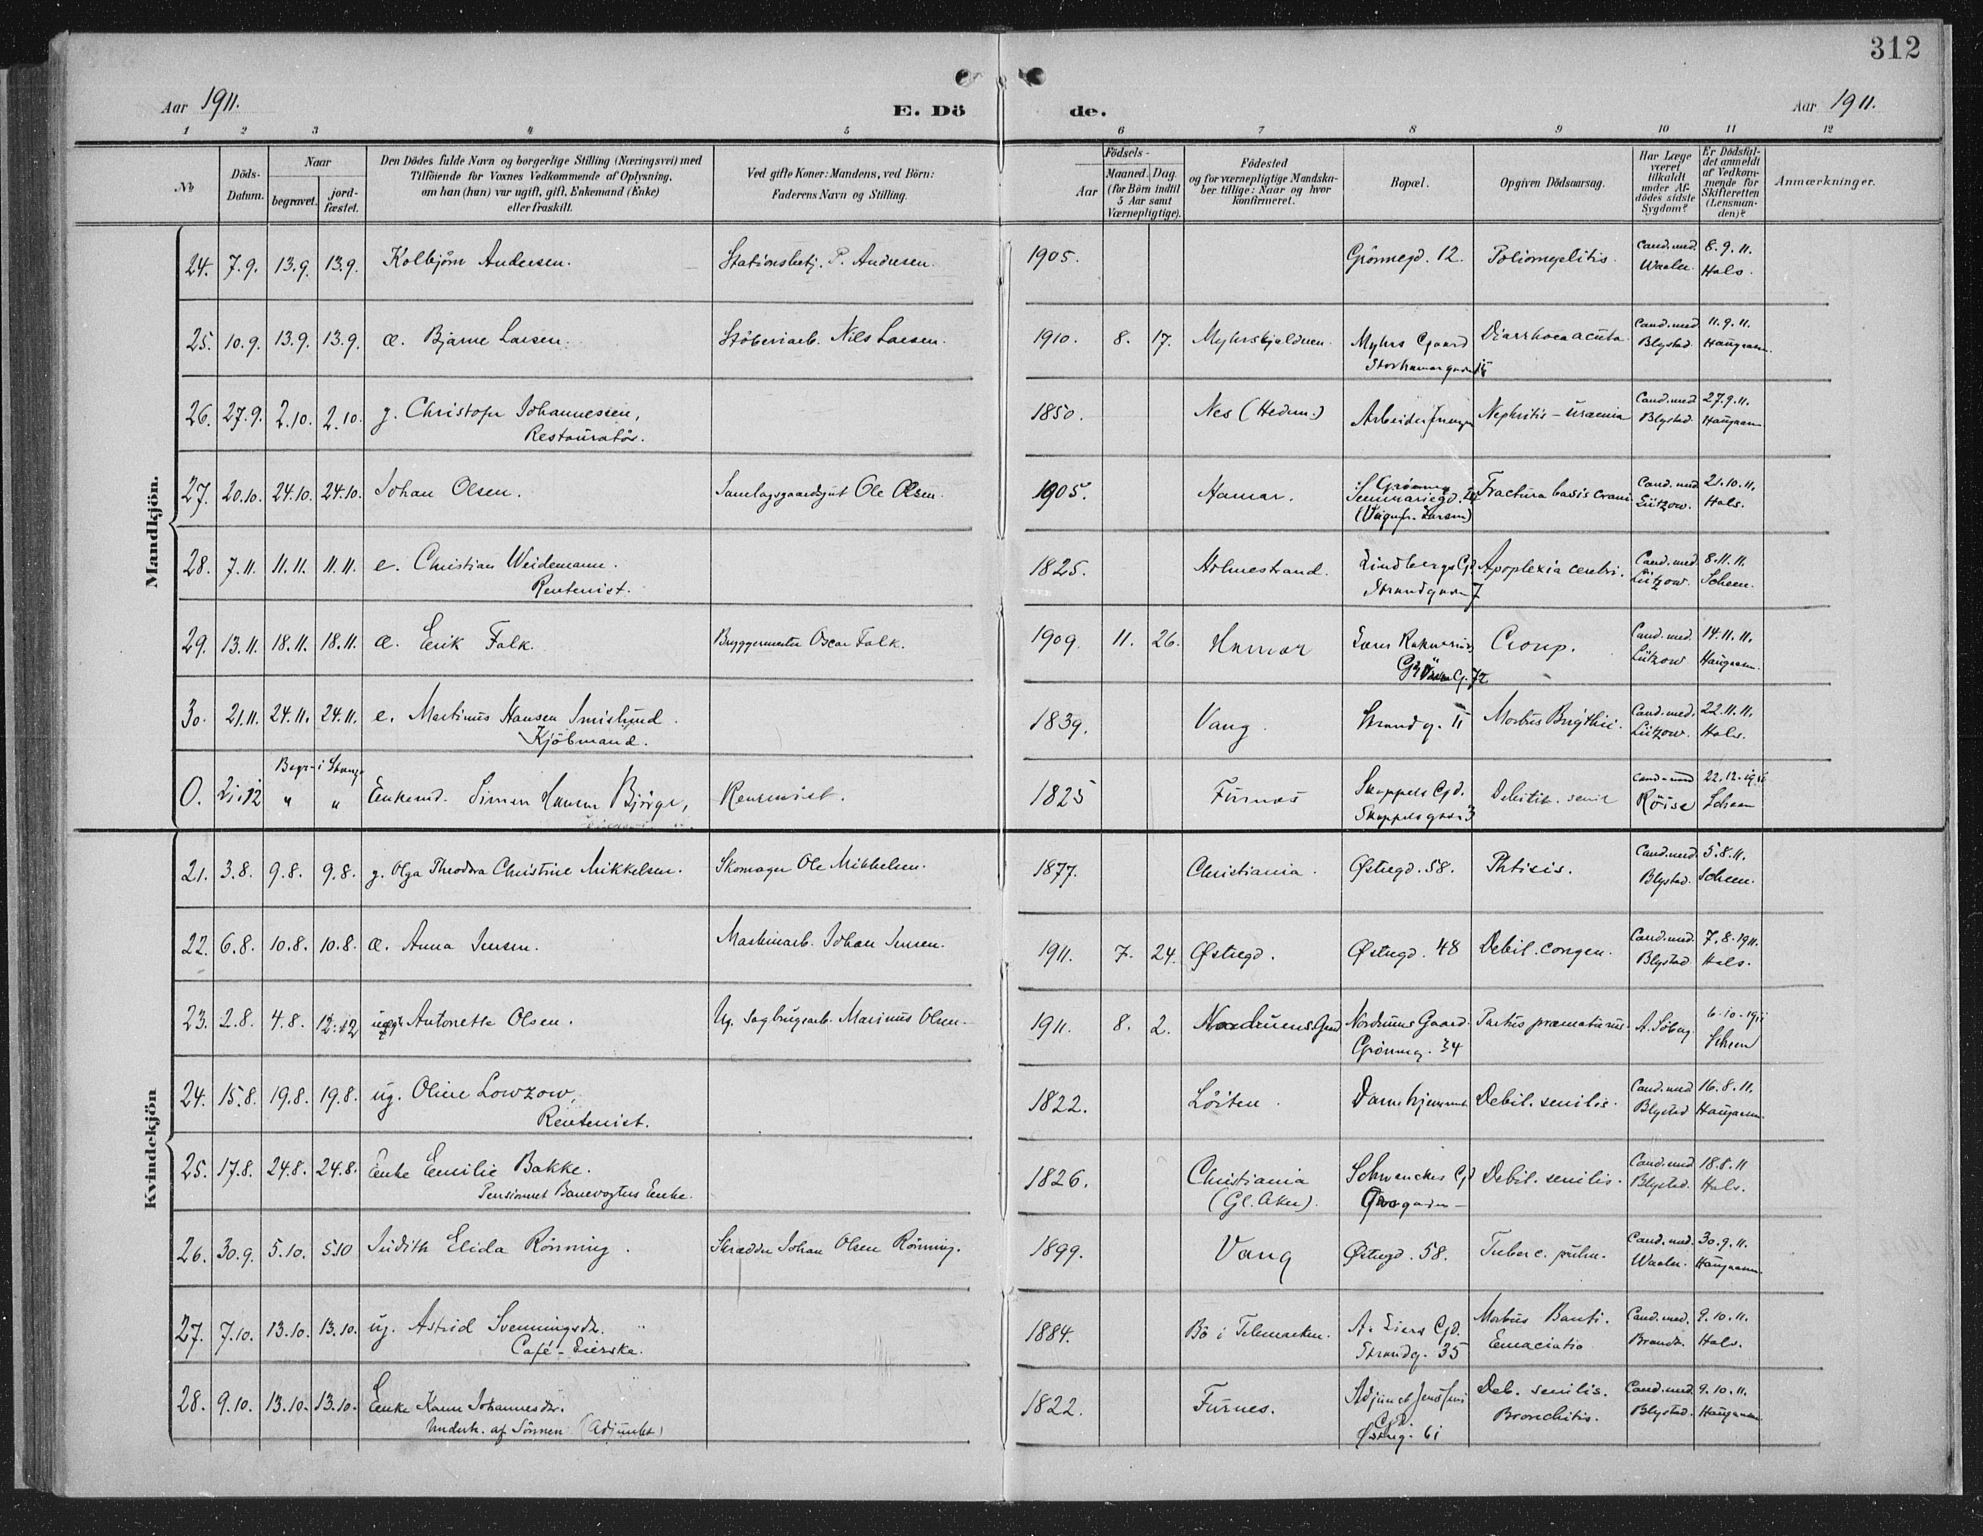 312
Aar 1911.
E. Dö
de.
Aar 1911.
1 2 3 4 5 6 7 8 9 10 11 12
No
Döds-Datum.
Naar
begravet.
jord-fæstet.
Den Dödes fulde Navn og borgerlige Stilling (Næringsvei) med
Tilföiende for Voxnes Vedkommende af Oplysning,
om han (hun) var ugift, gift, Enkemand (Enke)
eller fraskilt.
Ved gifte Koner: Mandens, ved Börn:
Faderens Navn og Stilling.
Födsels-
Aar
Maaned. Dag.
(for Börn indtil
5 Aar samt
Værnepligtige).
Födested
og for værnepligtige Mandska-
ber tillige: Naar og hvor
konfirmeret.
Bopæl.
Opgiven Dödsaarsag.
Har Læge
været
tilkaldt
under Af-
dödes sidste
Sygdom?
Er Dödsfal-
det anmeldt
af Vedkom-
mende for
Skifteretten
(Lensman-
den)?
Anmærkninger.
Mandkjön.
24. 7.9. 13.9. 13.9. Kolbjörn Andersen. Stationsbetj. P. Andresen. 1905. Grönnegd. 12. Poliomyelitis. Cand. med. Waaler. 8.9.11. Hals.
25. 10.9. 13.9. 13.9. æ. Bjarne Larsen. Stöberiarb. Nils Larsen. 1910. 8. 17. Myhrs Gaard Diarrhoea acuta. Cand. med. Blystad. 11.9.11.
26. 27.9. 2.10. 2.10. g. Christofer Johannessen,
Restauratör. 1850. Nes (Hedm.) Nephritis - uraemia Cand. med. Blystad. 27.9.11.
27. 20.10. 24.10. 24.10. Johan Olsen. Ole Olsen. 1905. Hamar. Fractura basis cranii Cand. med. Lützow. 21.10.11. Hals.
28. 7.11. 11.11. 11.11. e. Christian Weidemann.
Rentenist. 1825. Holmestrand. Lindbergs Gd
Strandgaden 7 Apoplexia cerebri. Cand. med. Lützow. 8.11.11. Scheen.
29. 13.11. 18.11. 18.11. æ. Erik Falk. Bryggermester Oscar Falk. 1909. 11. 26. Hamar Croup. Cand. med. Lützow 14.11.11.
30. 21.11. 24.11. 24.11. e. Martinus Hansen Imislund.
Kjöbmand. 1839. Vang. Strandg. 11 Morbus Brigthii. Cand. med. Lützow. 22.11.11. Hals.
Begr. i Stange
0. 21.12 " " Enkemd. Simen Hansen Bjørge, Rentenist. 1825 Furnes Skappels Gd.
Skappelsgaden 3 Debilit. senil Cand. med Röise 22.12.1911 Scheen
Kvindekjön
21. 3.8. 9.8. 9.8. g. Olga Theodora Christine Mikkelsen. Skomager Ole Mikkelsen. 1877. Christiania. Østregd. 58. Phtisis. Cand. med. Blystad. 5.8.11. Scheen.
22. 6.8. 10.8. 10.8. æ. Anna Jensen. Maskinarb. Johan Jensen. 1911. 7. 24. Østregd. Østregd. 48 Debil. congen. Cand. med. Blystad. 7.8.1911. Hals.
23. 2.8. 4.8. 12.12 Antonette Olsen. Ug. Sagbrugsarb. Marinus Olsen. 1911. 8. 2. Nordrums Gaard Nordrums Gaard.
Grönneg. 34 Partus præmaturus. 6.10.1911 Scheen
24. 15.8. 19.8. 19.8. ug. Oline Lowzow,
Rentenist. 1822. Löiten. Damehjemmet Debil. senilis. Cand. med Blystad 16.8.11.
25. 17.8. 24.8. 24.8. Enke Emilie Bakke.
Pensioneret Banevogters Enke. 1826. Christiania
(Gl. Aker). Schwenckes Gd Debil. senilis. Cand. med Blystad. 18.8.11 Hals.
26. 30.9. 5.10. 5.10 Judith Elida Rönning. Skrædder Johan Olsen Rönning. 1899. Vang Østregd. 58. Tuberc. pulm. Cand. med. Waaler. 30.9.11.
27. 7.10. 13.10. 13.10. ug. Astrid Svenningsdr.
Café-Eierske. 1884. Bö i Telemarken. A. Liers Gd.
Strandg. 35 Morbus Banti.
Emaciatio Cand. med. Brandt. 9.10.11. Hals.
28. 9.10. 13.10. 13.10. Enke Karen Johannesdr.
Underh. af Sönnen (Adjunkt) 1822. Furnes. Gd.
Østreg. 61 Deb. senilis.
Bronchitis. Cand. med. Blystad. 9.10.11.